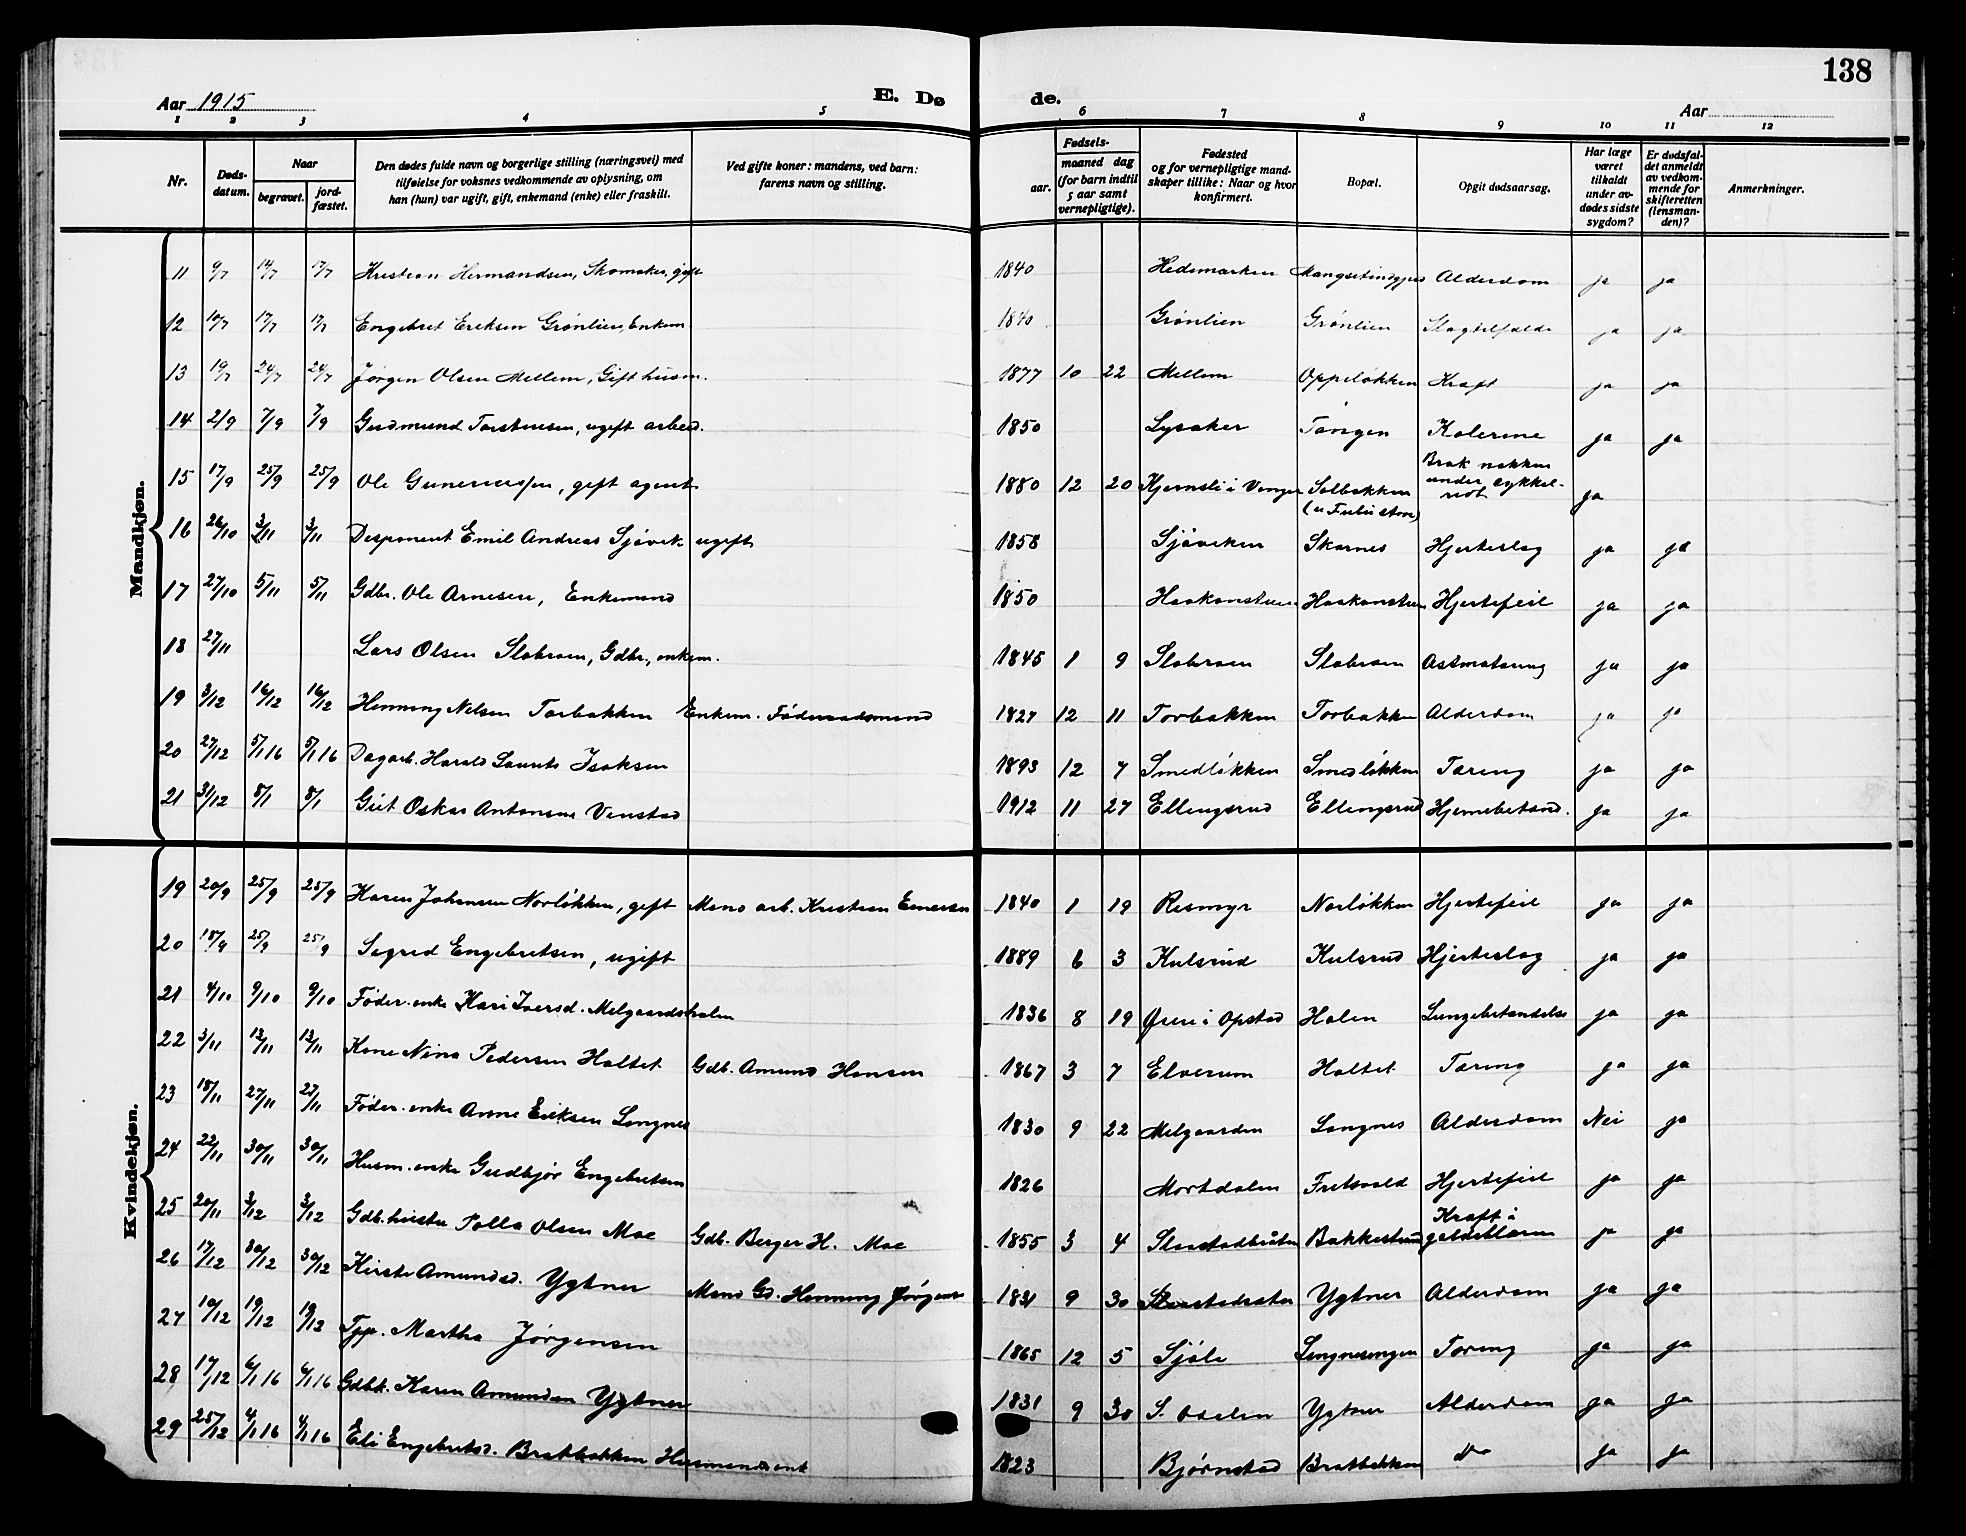 138
Aar 1915
E. Dø de.
Aar
1 2 3 4 5 6 7 8 9 10 11 12
Nr.
Døds-
datum.
Naar
begravet.
jord-
fæstet.
Den dødes fulde navn og borgerlige stilling (næringsvei) med
tilføielse for voksnes vedkommende av oplysning, om
han (hun) var ugift, gift, enkemand (enke) eller fraskilt.
Ved gifte koner: mandens, ved barn:
farens navn og stilling.
Fødsels-
aar.
maaned dag
(for barn indtil
5 aar samt
vernepligtige).
Fødested
og for vernepligtige mand-
skaper tillike: Naar og hvor
konfirmert.
Bopæl.
Opgit dødsaarsag.
Har læge
været
tilkaldt
under av-
dødes sidste
sygdom?
Er dødsfal-
det anmeldt
av vedkom-
mende for
skifteretten
(lensman-
den)?
Anmerkninger.
Mandkjøn.
11 9/7 14/7 17/7 Kristian Hermandsen, Skomaker, gift 1840 Hedemarken Alderdom ja ja
12 10/7 17/7 17/7 Engebret Eriksen Grønlien, Enkem. 1840 Grønlien Grønlien ja ja
13 19/7 24/7 24/7 Jørgen Olsen Mellem, Gift husm. 1877 10 22 Mellem Oppeløkken Kræft ja ja
14 2/9 7/9 7/9 Gudmund Torstensen, ugift arbeid. 1850 Lysaker Tangen Kolerine ja ja
15 17/9 25/9 25/9 Ole Gunerius sen, gift agent 1880 12 20 Kjernsli i Vinger Solbakken Brak nakken under cykkel- ja
16 26/10 3/11 3/11 Disponent Emil Andreas Sjøvik ugift 1858 Sjøviken Skarnes Hjerteslag ja ja
17 27/10 5/11 5/11 Gdbr. Ole Arnesen, Enkemand 1850 Haakonstuen Haakonstuen Hjertefeil ja ja
18 27/11 Lars Olsen Slobraen, Gdbr., enkem. 1845 1 9 Slobraen Slobraen ja ja
19 3/12 16/12 16/12 Henning Nilsen Torbakken Enkem. Føderaadsmand 1827 12 11 Torbakken Torbakken Alderdom ja ja
20 27/12 5/1 16 5/1 16 Dagarb. Harald Laurits Isaksen 1893 12 7 Smedløkken Smedløkken Tæring ja ja
21 31/12 8/1 8/1 Gut Oskar Antonsen Venstad 1912 11 27 Ellingsrud Ellingsrud Hjernebetænd. ja ja
Kvindekjøn.
19 20/9 25/9 25/9 Karen Johansen Norløkken, gift Mand arb. Kristian Einersen 1840 1 19 Rismyr Norløkken Hjertefeil ja ja
20 18/9 25/9 25/9 Sigrid Engebretsen, ugift 1889 6 3 Kulsrud Kulsrud Hjerteslag ja ja
21 4/10 9/10 9/10 Føder. enke Kari Iversd. Melgaardshalen 1836 8 19 Øieri Opstad Halen Lungebetændelse ja ja
22 3/11 12/11 12/11 Kone Nina Pedersen Haltet Gdb. Amund Hansen 1867 3 7 Elverum Haltet Tæring ja ja
23 18/11 27/11 27/11 Føder. enke Anne Eriksen Langnes 1830 9 22 Melgaarden Langnes Alderdom Nei ja
24 22/11 30/11 30/11 Husm. enke Gudbjør Engebretsen 1826 Mortdalen Fretvold Hjertefeil ja ja
25 20/11 3/12 3/12 Gdb. hustru Palla Olsen Moe Gdb. Berger H. Moe 1855 3 4 Bakkestuen Kræft i galdeblæren ja ja
26 17/12 30/12 30/12 Kirsti Amundsd. Ygtner Mand Gd. Henning Jørgens 1831 9 30 Ygtner Alderdom ja ja
27 10/12 19/12 19/12 Martha Jørgensen 1865 12 5 Sjøli Langnesengen Tæring ja ja
28 17/12 6/1 16 6/1 16 Gdbk. Karen Amundsen Ygtner 1831 9 30 S. Odalen Ygtner Alderdom ja ja
29 25/12 4/1 16 4/1 16 Eli Engebretsd. Bratbakken Husmandsenk 1823 Bjørnstad Bratbakken Do ja ja